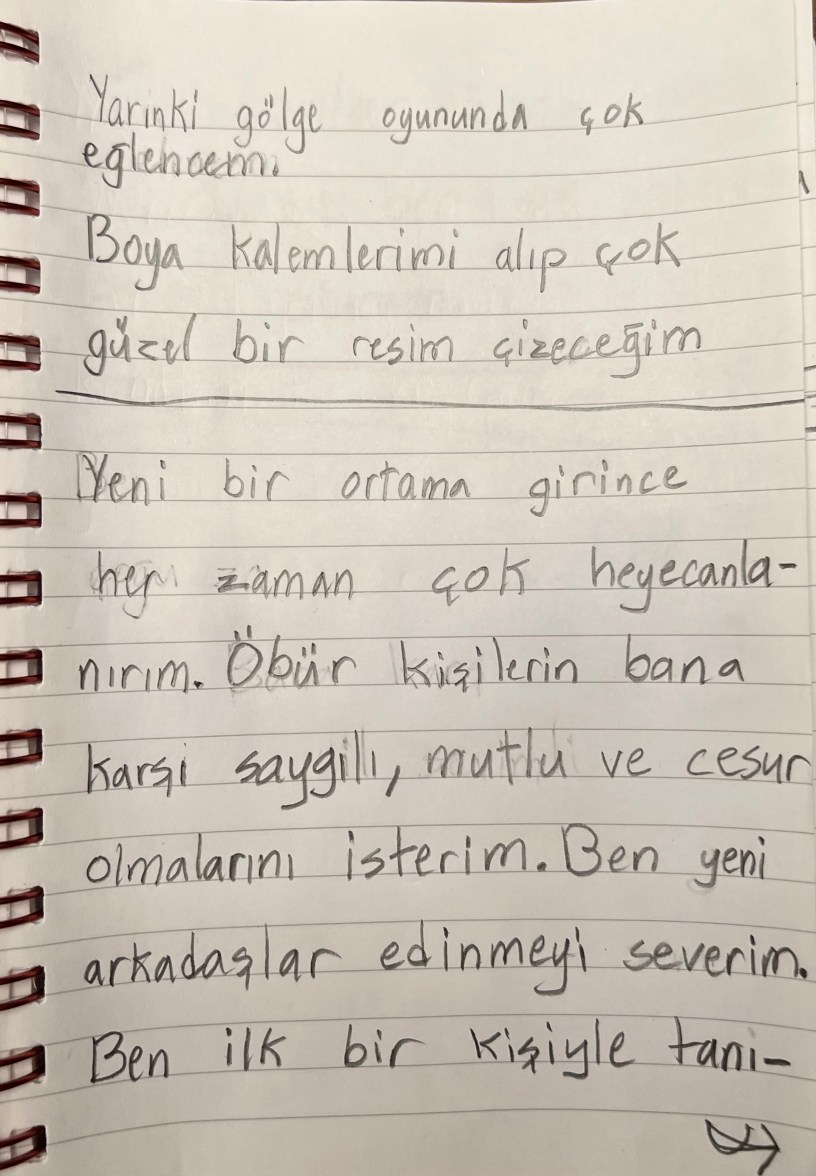 Yarınki gölge oyununda çok
eğlencem.
Boya kalemlerimi alıp çok
güzel bir resim çizeceğim
Yeni bir ortama girince
her zaman çok heyecanla-
nırım. Öbür kişilerin bana
karşi saygılı, mutlu ve cesur
olmalarını isterim. Ben yeni
arkadaşlar edinmeyi severim.
Ben ilk bir kişiyle tani-